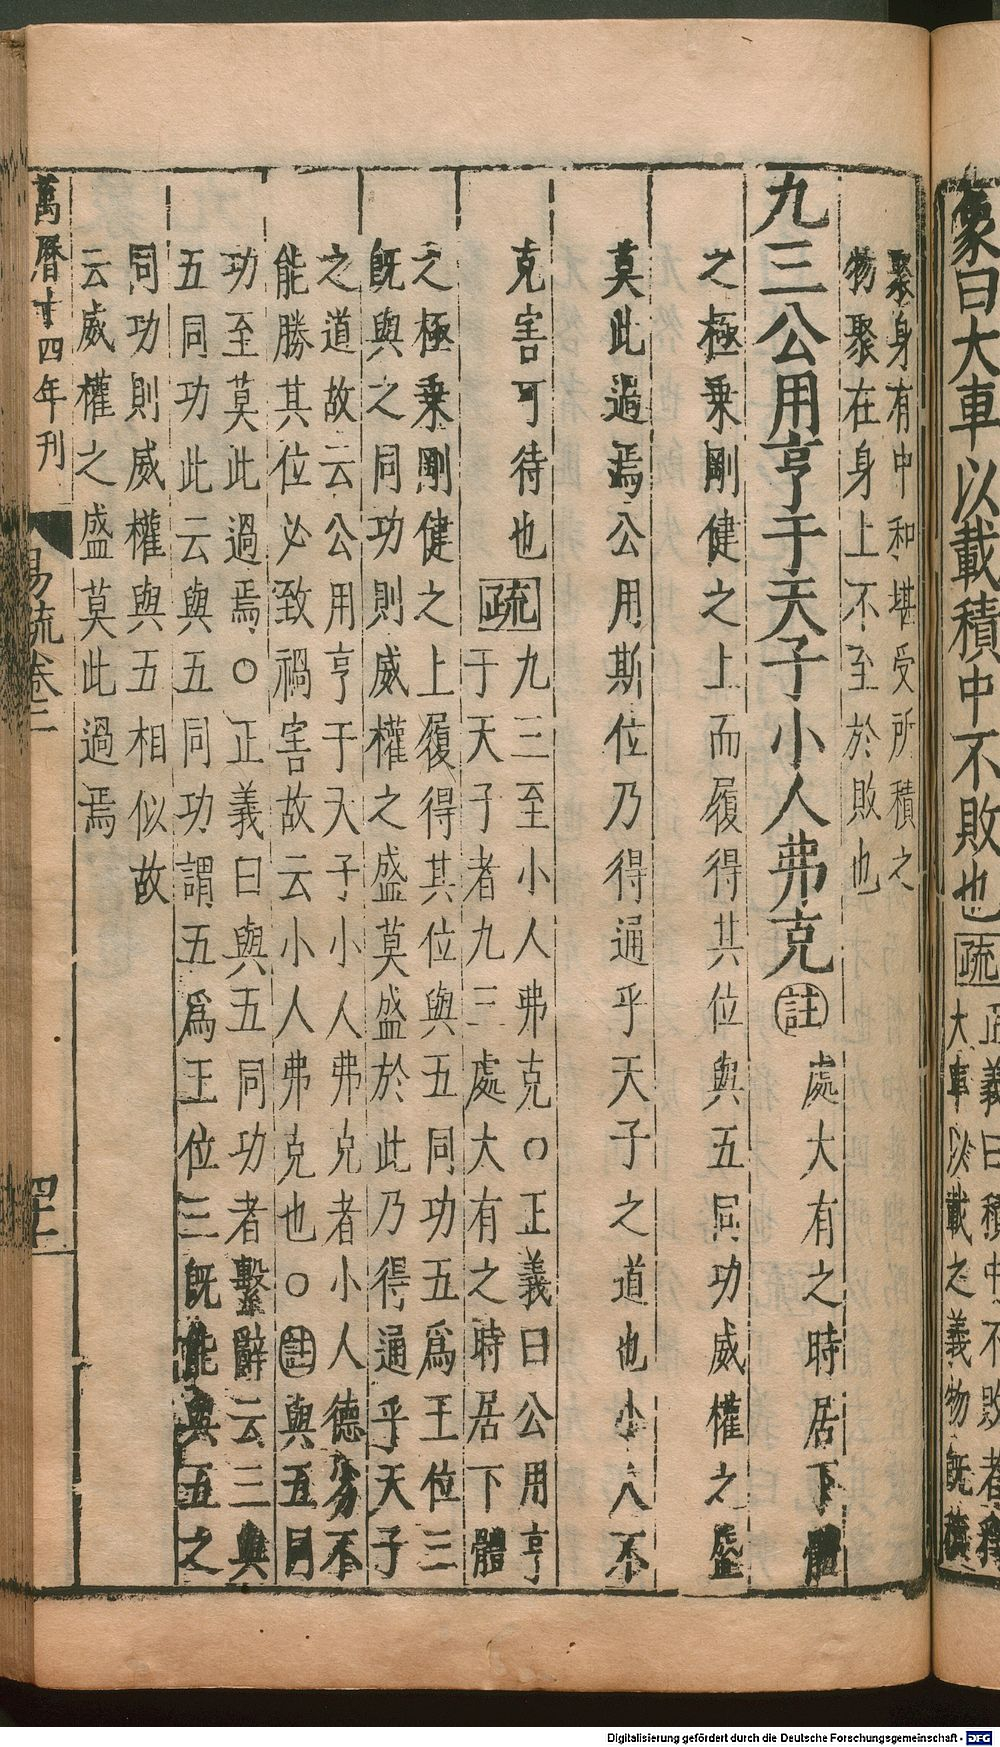 象曰大車以載積中不敗也疏
正義曰積中不敗者釋
大車以載之義物旣積
聚身有中和堪受所積之
物聚在身上不至於敗也
九三公用亨于天子小人弗克註處大有之時居下體
之極乗剛健之上而履得其位與五同功威權之盛
莫此過焉公用斯位乃得通乎天子之道也小人不
克害可待也疏
九三至小人弗克○正義曰公用亨
于天子者九三處大有之時居下體
之極乗剛健之上履得其位與五同功五爲王位三
旣與之同功則威權之盛莫盛於此乃得通乎天子
之道故云公用亨于天子小人弗克者小人德劣不
能勝其位必致禍害故云小人弗克也○註與五同
功至莫此過焉○正義曰與五同功者繫辭云三與
五同功此云與五同功謂五爲王位三旣能與五之
同功則威權與五相似故
云威權之盛莫此過焉
萬曆十四年刊
易疏卷二
四十一
Digitalisierung gefördert durch die Deutsche Forschungsgemeinschaft - DFG